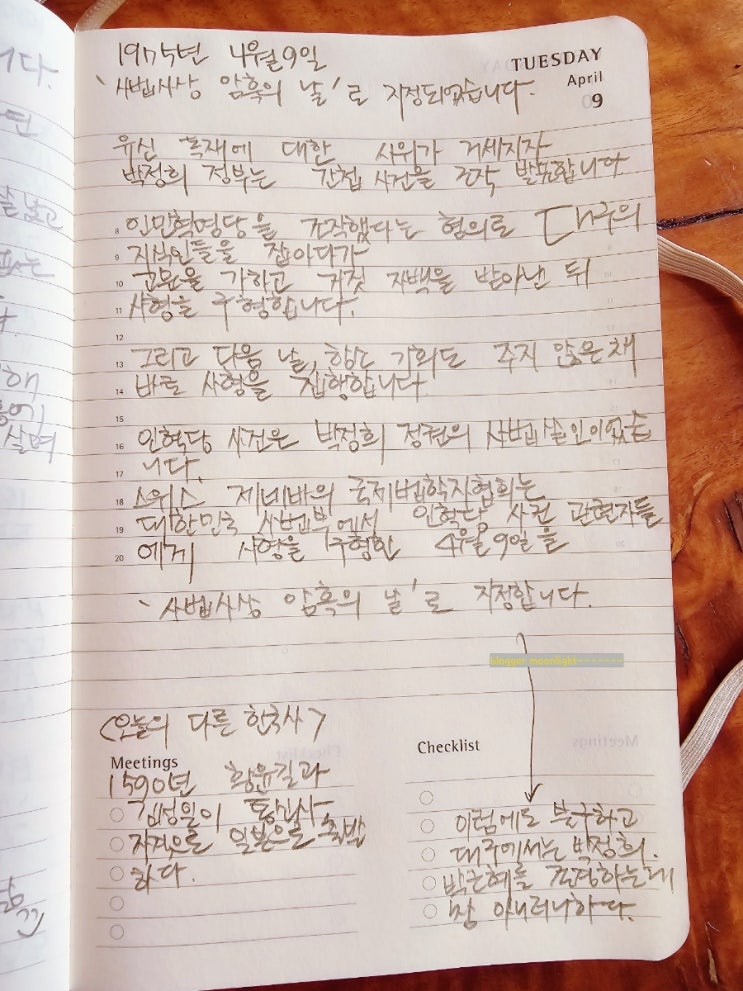 1975년 4월 9일
TUESDAY
April
9
'사법사상 암흑의 날'로 지정되었습니다.
유신 독재에 대한 시위가 거세지자
박정희 정부는 간첩 사건을 조작 발표합니다
8 인민혁명당을 조작했다는 혐의로 대구의
9 지식인들을 잡아다가
10 고문을 가하고 거짓 자백을 받아낸 뒤
11 사형을 구형합니다.
12
13 그리고 다음 날, 항소 기회도 주지 않은 채
14 바로 사형을 집행합니다
15
16 인혁당 사건은 박정희 정권의 사법살인이었습
17 니다.
18 스위스 제네바의 국제법학자협회는
19 대한민국 사법부에서 인혁당 사건 관련자들
20 에게 사형을 구형한 4월 9일을
'사법사상 암흑의 날'로 지정합니다.
blogger moonlight
<오늘의 다른 한국사>
Meetings
1590년 황윤길과
김성일이 통신사
자격으로 일본으로 출발
하다.
Checklist
이럼에도 불구하고
대구에서는 박정희.
박근혜를 존경하는데
참 아이러니하다.